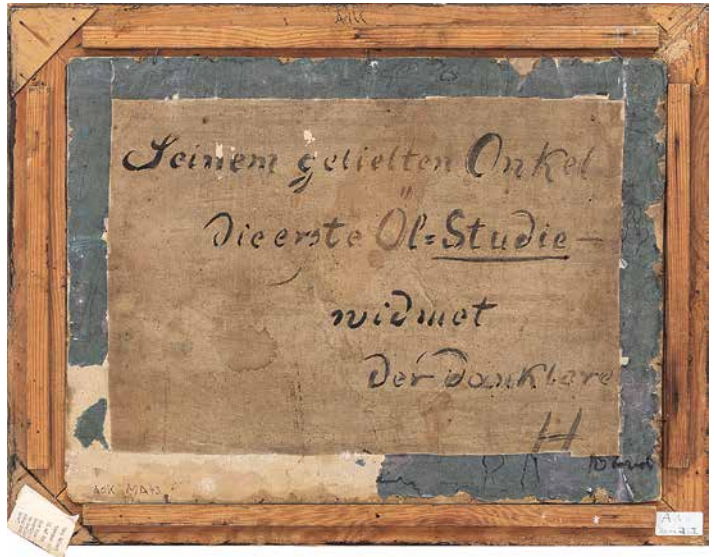 Seinem geliebten Onkel
die erste Öl=Studie—
widmet
der dankbare
H